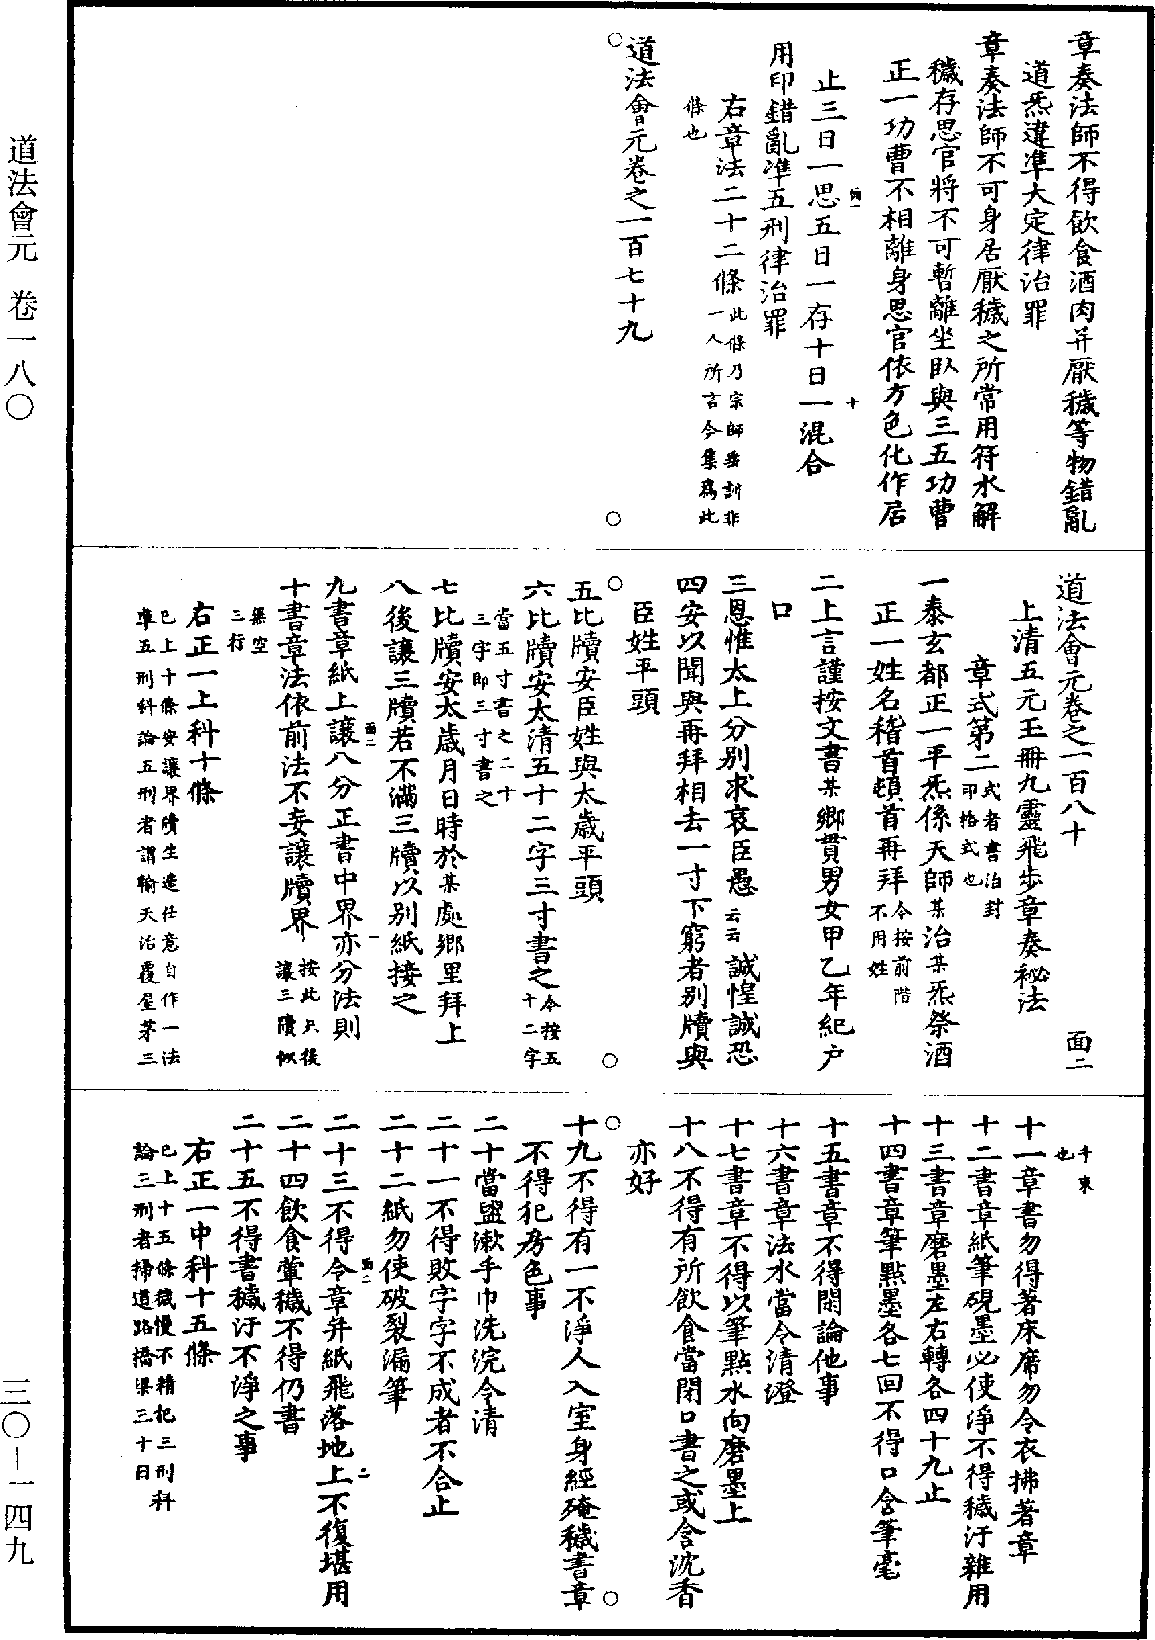 道法會元　卷一八〇
三〇—一四九
章奏法師不得飲食酒肉并厭穢等物錯亂
道炁違准大定律治罪
章奏法師不可身居厭穢之所常用符水解
穢存思官將不可暫離坐臥與三五功曹
正一功曹不相離身思官依方色化作居
止三日一思五日一存十日一混合
用印錯亂准五刑律治罪
右章法二十二條此條乃宗師垂訓非
一人所言今集為此
條也
道法會元卷之一百七十九
道法會元卷之一百八十　面二
上清五元玉冊九靈飛步章奏秘法
章式第二式者書治封
即格式也
一泰玄都正一平炁係天師某治某炁祭酒
正一姓名稽首頓首再拜今按前階
不用姓
二上言謹按文書某鄉貫男女甲乙年紀戶
口
三恩惟太上分別求哀臣愚云云誠惶誠恐
四安以聞與再拜相去一寸下窮者別牘與
臣姓平頭
五比牘安臣姓與太歲平頭
六比牘安太清五十二字三寸書之今按五
十二字
當五寸書之二十
三字即三寸書之
七比牘安太歲月日時於某處鄉里拜上
八後讓三牘若不滿三牘以別紙接之
九書章紙上讓八分正書中界亦分法則
十書章法依前法不妄讓牘界按此只後
讓三牘似
集空
三行
右正一上科十條
已上十條安讓界牘生違任意自作一法
準五刑科論五刑者謂輸天治覆屋茅三
千束
也
十一章書勿得著床席勿令衣拂著章
十二書章紙筆硯墨必使淨不得穢汙雜用
十三書章磨墨左右轉各四十九止
十四書章筆點墨各七回不得口含筆毫
十五書章不得閑論他事
十六書章法水當令清澄
十七書章不得以筆點水向磨墨上
十八不得有所飲食當閉口書之或含沈香
亦好
十九不得有一不淨人入室身經殗穢書章
不得犯房色事
二十當盥漱手巾洗浣令清
二十一不得敗字字不成者不合止
二十二紙勿使破裂漏筆
二十三不得令章并紙飛落地上不復堪用
二十四飲食葷穢不得仍書
二十五不得書穢汙不淨之事
右正一中科十五條
已上十五條穢慢不精犯三刑科
論三刑者掃道路橋梁三十日